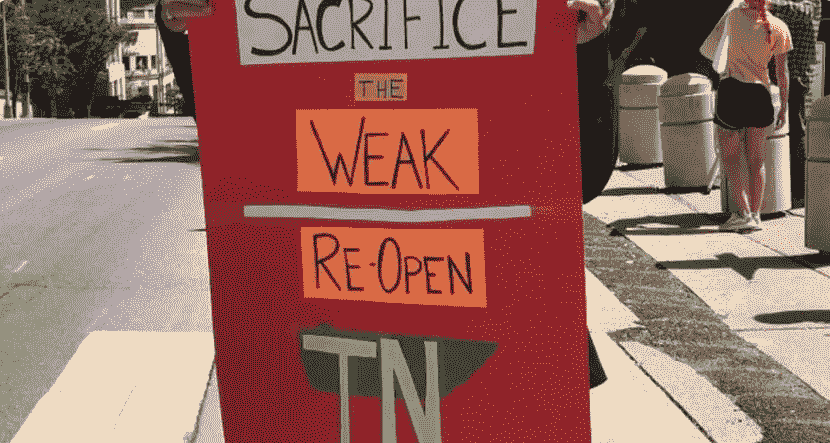 SACRIFICE
THE
WEAK
RE-OPEN
TN